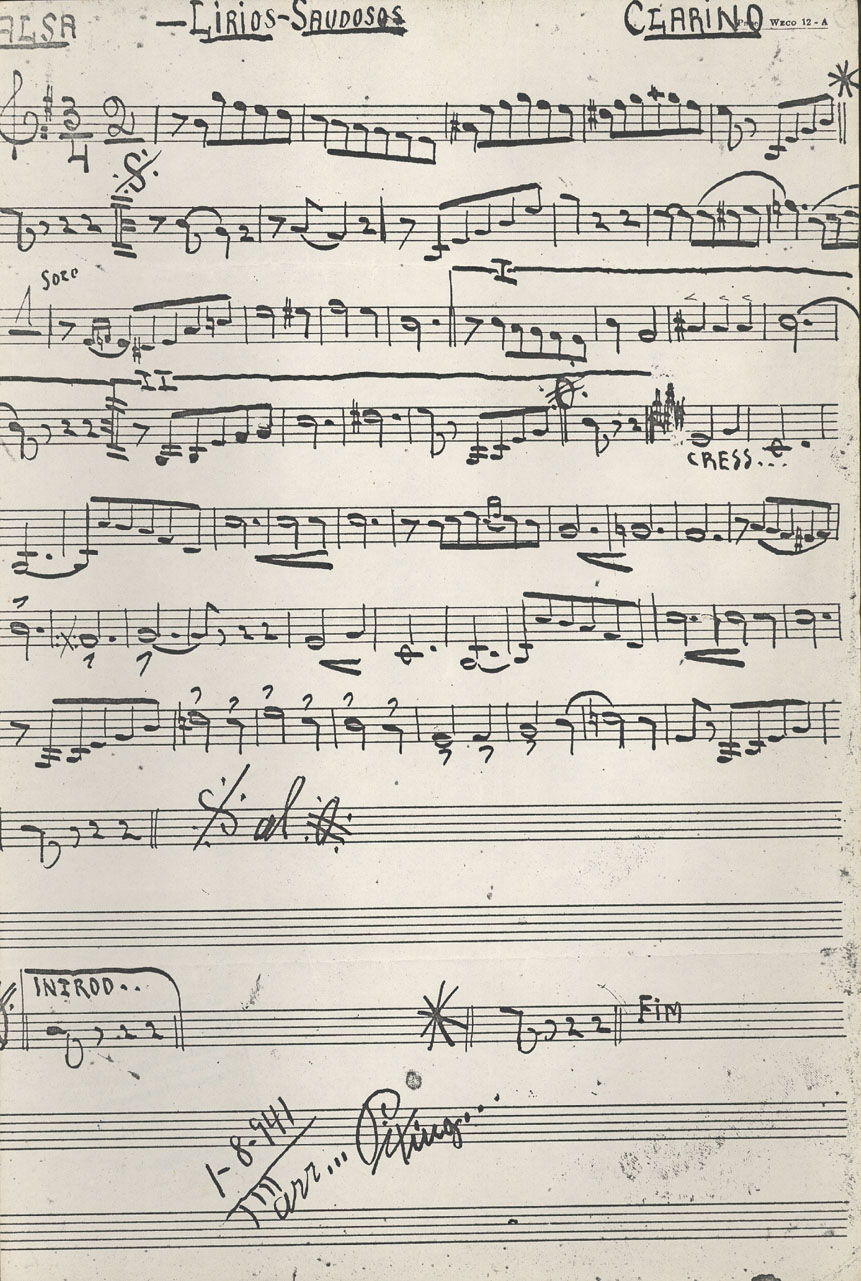 ALSA — LIRIOS-SAUDOSOS CLARINO WECO 12 - A
3
4
2
SOLO
I
II
CRESS...
al
INTROD..
FIM
1-8-941
arr...